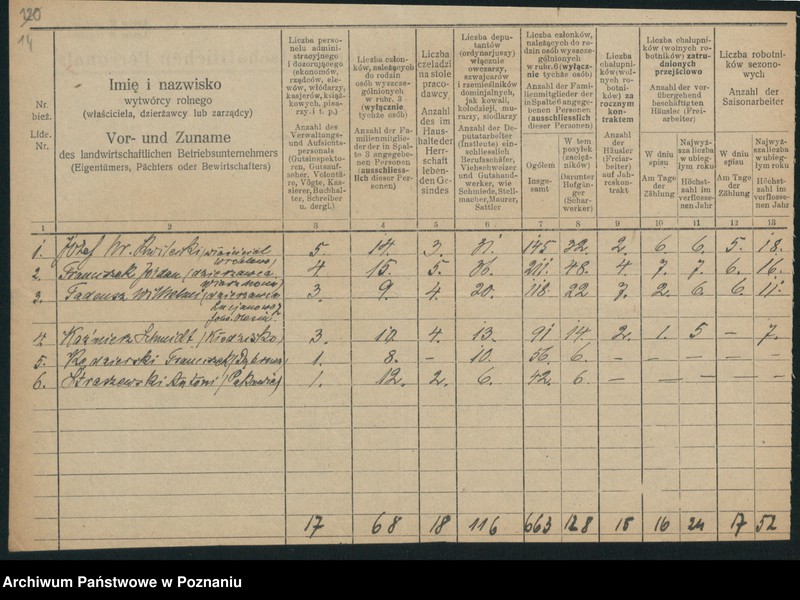 120
14
Nr.
bież.
Lfde.
Nr.
Imię i nazwisko
wytwórcy rolnego
(właściciela, dzierżawcy lub zarządcy)
Vor- und Zuname
des landwirtschaftlichen Betriebsunternehmers
(Eigentümers, Pächters oder Bewirtschafters)
Liczba perso-
nelu admini-
stracyjnego
i dozorującego
(ekonomów,
rządców, ele-
wów, włódarzy,
kasjerów, książ-
kowych, pisa-
rzy. i t. p.)
Anzahl des
Verwaltungs-
und Aufsichts-
personals
(Gutsinspekto-
ren, Gutsauf-
seher, Volontä-
re, Vögte, Kas-
sierer, Buchhal-
ter, Schreiber
u. dergl.)
Liczba człon-
ków, należących
do rodzin
osób wyszcze-
gólnionych
w rubr. 3
(wyłącznie
tychże osób)
Anzahl der Fa-
milienmitglie-
der der in Spal-
te 3 angegebe-
nen Personen
(ausschliess-
lich dieser Per-
sonen)
Liczba
czeladzi
na stole
praco-
dawcy
Anzahl
des im
Haus-
halte der
Herr-
schaft
leben-
den Ge-
sindes
Liczba depu-
tantów
(ordynarjuszy)
włącznie
owczarzy,
szwajcarów
i rzemieślników
dominjalnych,
jak kowali,
kołodzieji, mu-
rarzy, siodlarzy
Anzahl der De-
putatarbeiter
(Instleute) ein-
schliesslich
Berufsschäfer,
Viehschweizer
und Gutshand-
werker, wie
Schmiede, Stell-
macher, Maurer,
Sattler
Liczba członków,
należących do ro-
dzin osób wyszcze-
gólnionych
w rubr. 6 (wyłącz-
nie tychże osób)
Anzahl der Fami-
lienmitglieder der
in Spalte 6 angege-
benen Personen
(ausschliesslich
dieser Personen)
Ogółem
Insge-
samt
W tem
posyłek
(zaciąż-
ników)
Darunter
Hofgän-
ger
(Schar-
werker)
Liczba
chałupni-
ków(wol-
nych ro-
botni-
ków) za
rocznym
kon-
traktem
Anzahl
der
Häusler
(Freiar-
beiter)
auf Jah-
reskon-
trakt
Liczba chałupni-
ków (wolnych ro-
botników) zatru-
dnionych
przejściowo
Anzahl der vor-
übergehend
beschäftigten
Häusler (Frei-
arbeiter)
W dniu
spisu
Am Tage
der
Zählung
Najwyż-
sza liczba
w ubieg-
łym roku
Höchst-
zahl im
verflosse-
nen Jahr
Liczba robotni-
ków sezono-
wych
Anzahl der
Saisonarbeiter
W dniu
spisu
Am Tage
der
Zählung
Najwyż-
sza liczba
w ubieg-
łym roku
Höchst-
zahl im
verflosse-
nen Jahr
1 2 3 4 5 6 7 8 9 10 11 12 13
1. Józef 5. 14. 3. 31. 145 32. 2. 6. 6. 5. 18.
2. Franciszek 4 15. 5. 36. 211. 48. 4. 7. 7. 6. 16.
3. Tadeusz 3. 9. 4. 20. 118. 22 7. 2. 6. 6. 11.
4. Kaźmierz Schmidt 3. 10. 4. 13. 91 14. 2. 1. 5 – 7.
5. Franciszek 1. 8. – 10. 56. 6. – – – – –
6. Antoni 1. 12. 2. 6. 42. 6 – – – – –
17 68 18 116 663 128 15 16 24 17 52
Archiwum Państwowe w Poznaniu